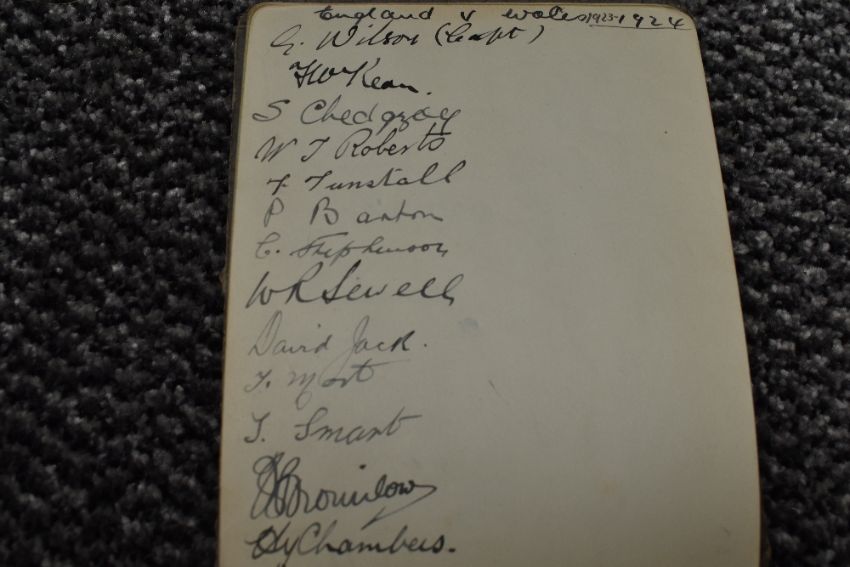 England v Wales 1923-1924
G. Wilson (Capt)
F W Kean.
S Chedgzoy
W T Roberts
F Tunstall
P Barton
C. Stephenson
W R Sewell
David Jack.
T. Mort
T. Smart
Brownlow
Hy Chambers.